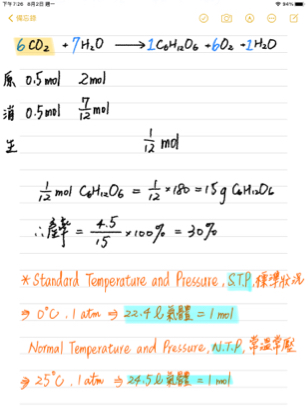 下午7:26 8月2日 週一
94%
備忘錄
6CO₂ +7H₂O ⟶ 1C₆H₁₂O₆ +6O₂ +1H₂O
原 0.5mol 2mol
消 0.5mol 7/12 mol
生 1/12 mol
1/12 mol C₆H₁₂O₆ = 1/12 ×180 = 15g C₆H₁₂O₆
∴產率 = 4.5/15 ×100% = 30%
* Standard Temperature and Pressure, S.T.P, 標準狀況
⇒ 0°C . 1 atm ⇒ 22.4 ℓ 氣體 = 1 mol
Normal Temperature and Pressure, N.T.P, 常溫常壓
⇒ 25°C . 1 atm ⇒ 24.5 ℓ 氣體 = 1 mol